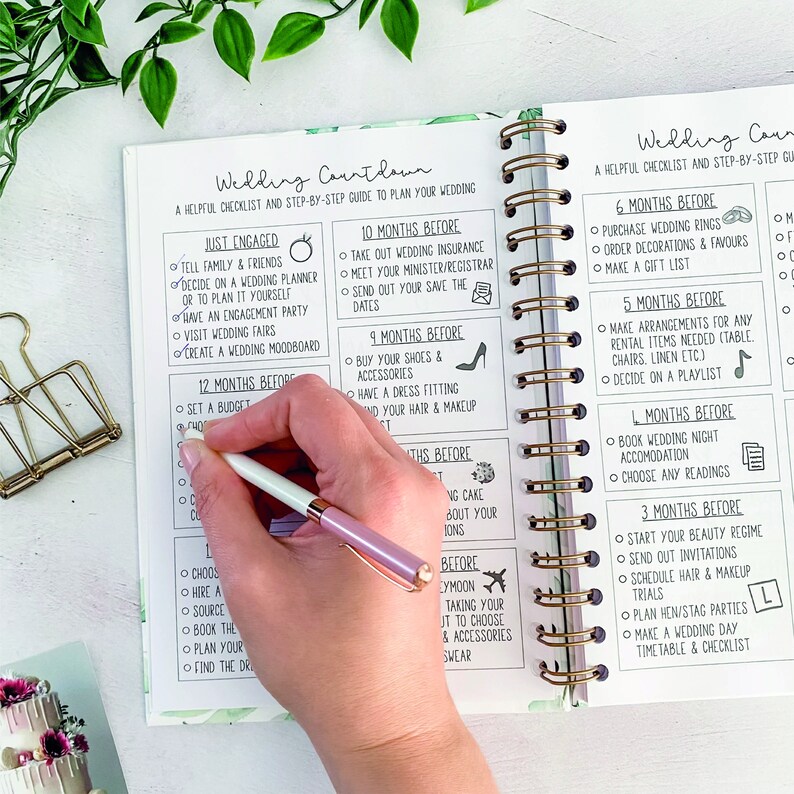 Wedding Countdown
A HELPFUL CHECKLIST AND STEP-BY-STEP GUIDE TO PLAN YOUR WEDDING
JUST ENGAGED
TELL FAMILY & FRIENDS
DECIDE ON A WEDDING PLANNER
OR TO PLAN IT YOURSELF
HAVE AN ENGAGEMENT PARTY
VISIT WEDDING FAIRS
CREATE A WEDDING MOODBOARD
12 MONTHS BEFORE
SET A BUDGET
CHOO
CHOOS
HIRE A
SOURCE
BOOK THE
PLAN YOUR
FIND THE DR
10 MONTHS BEFORE
TAKE OUT WEDDING INSURANCE
MEET YOUR MINISTER/REGISTRAR
SEND OUT YOUR SAVE THE
DATES
9 MONTHS BEFORE
BUY YOUR SHOES &
ACCESSORIES
HAVE A DRESS FITTING
IND YOUR HAIR & MAKEUP
IST
THS BEFORE
DING CAKE
BOUT YOUR
ONS
BEFORE
EYMOON
TAKING YOUR
UT TO CHOOSE
& ACCESSORIES
SWEAR
Wedding Coun
A HELPFUL CHECKLIST AND STEP-BY-STEP GU
6 MONTHS BEFORE
PURCHASE WEDDING RINGS
ORDER DECORATIONS & FAVOURS
MAKE A GIFT LIST
5 MONTHS BEFORE
MAKE ARRANGEMENTS FOR ANY
RENTAL ITEMS NEEDED (TABLE,
CHAIRS, LINEN ETC.)
DECIDE ON A PLAYLIST
4 MONTHS BEFORE
BOOK WEDDING NIGHT
ACCOMODATION
CHOOSE ANY READINGS
3 MONTHS BEFORE
START YOUR BEAUTY REGIME
SEND OUT INVITATIONS
SCHEDULE HAIR & MAKEUP
TRIALS
PLAN HEN/STAG PARTIES
L
MAKE A WEDDING DAY
TIMETABLE & CHECKLIST